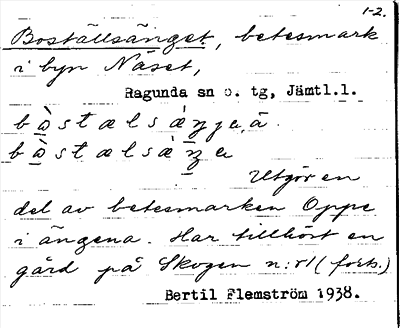 1-2.
Boställsänget, betesmark
i byn Näset,
Ragunda sn o. tg, Jämtl.l.
Utgör en
del av betesmarken Oppe
i ängena. Har tillhört en
gård på Skogen n:r1 (forts.)
Bertil Flemström 1938.